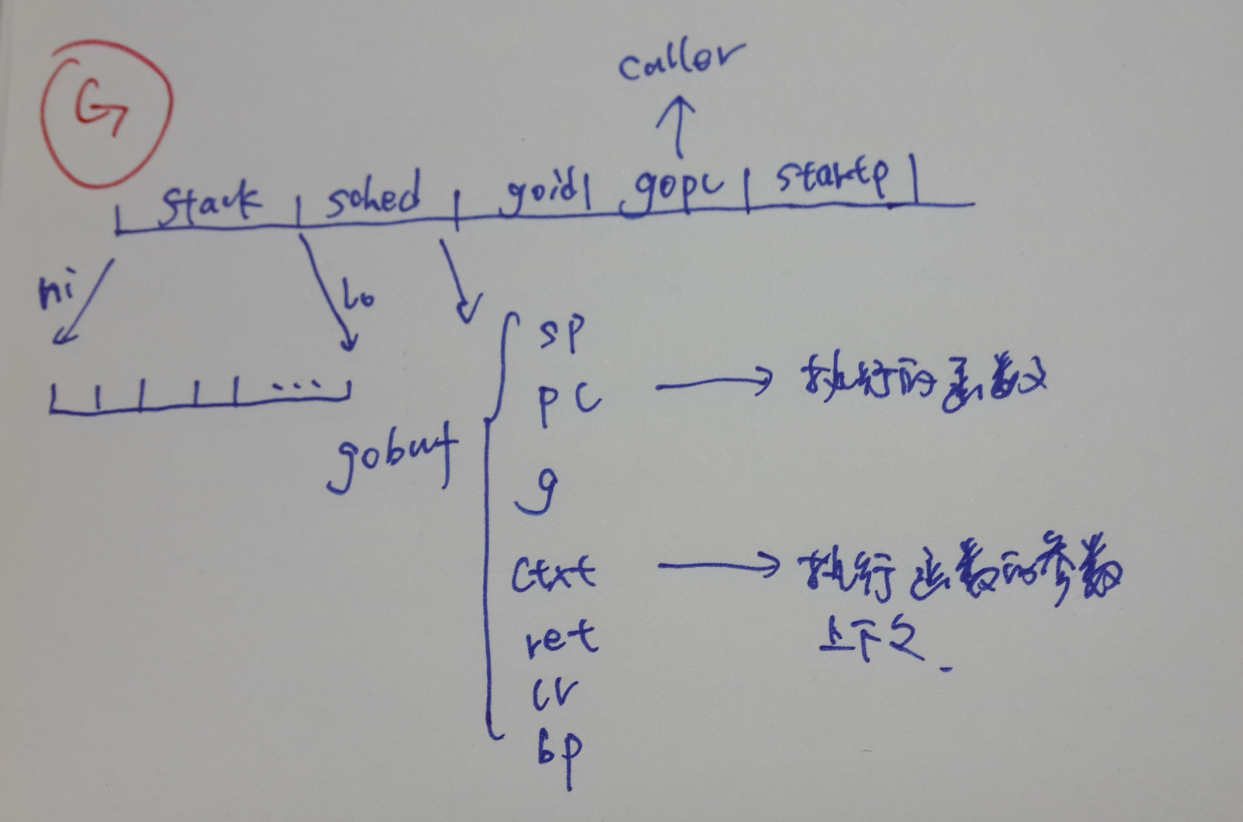 G
caller
stack sched goid gopc startp
hi
lo
sp
pc 执行的函数
gobuf
g
ctxt 执行函数的参数
上下文.
ret
lr
bp